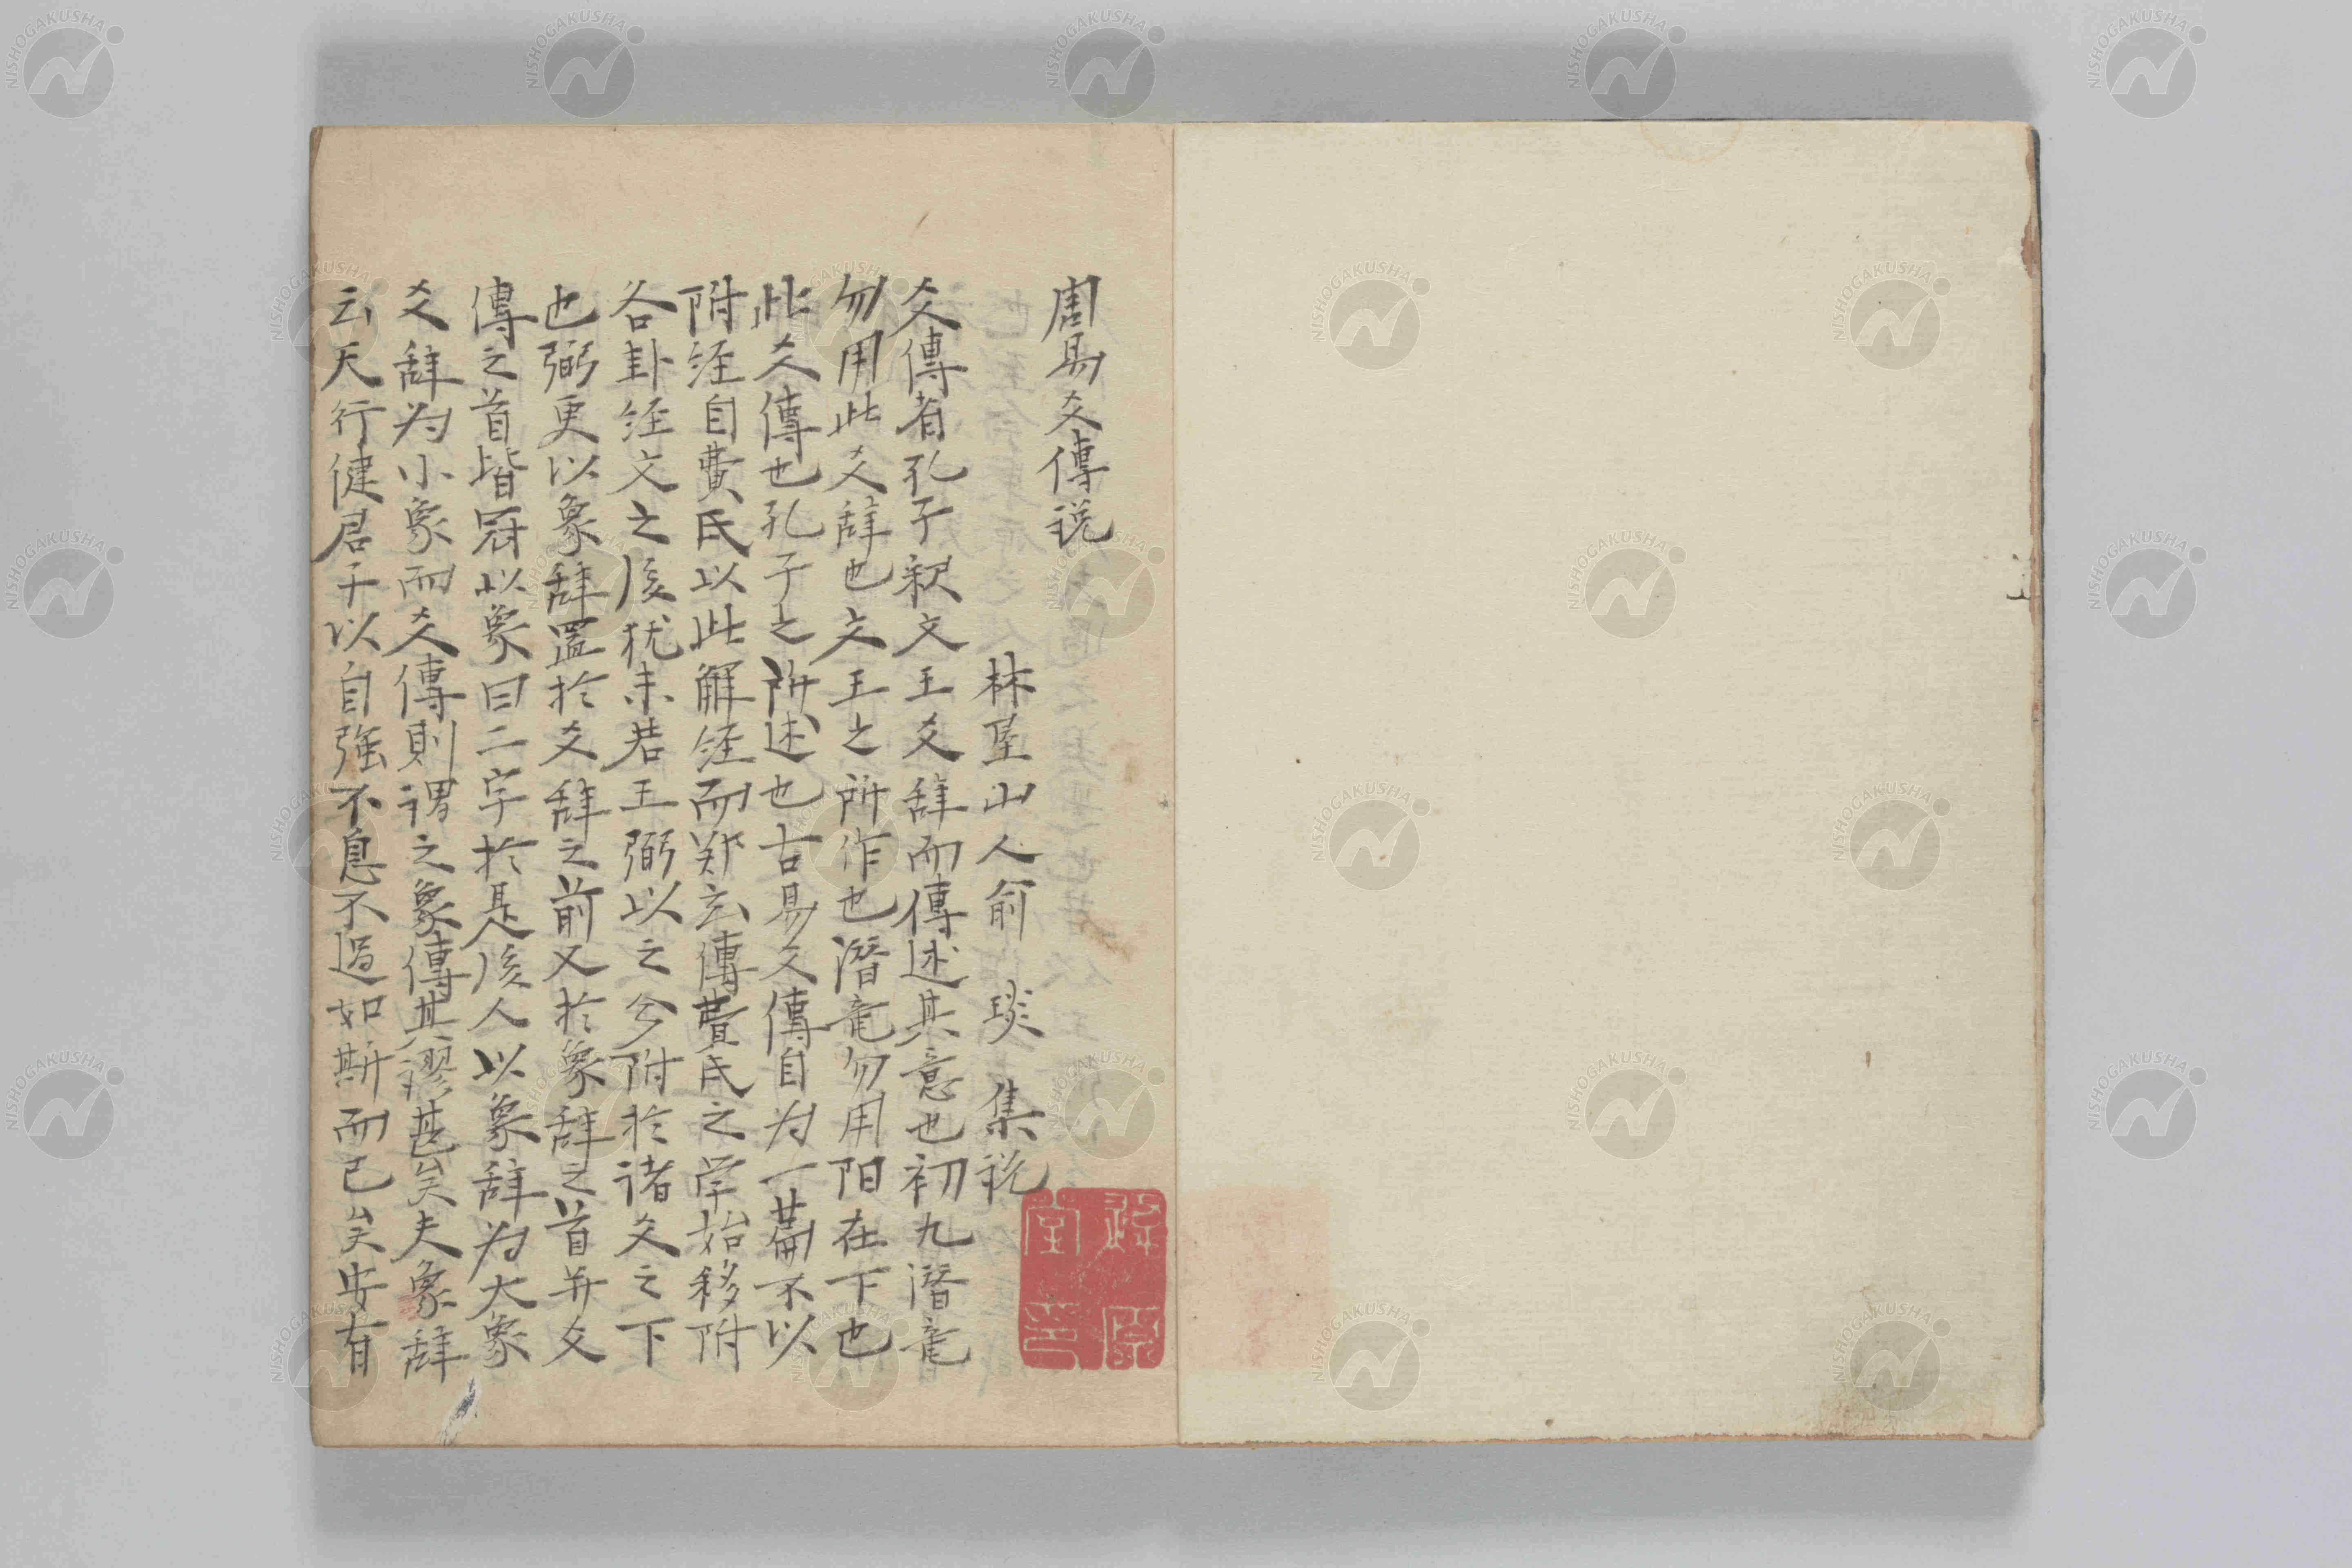 周易爻傳説
林屋山人俞 琰 集説
爻傳者孔子釈文王爻辞而傳述其意也初九潜竜
勿用此爻辞也文王之所作也潜竜勿用阳在下也
此爻傳也孔子之所述也古易爻傳自为一萹不以
附経自費氏以此解経而郑玄傳費氏之学始移附
各卦経文之後犹未若王弼以之分附於诸爻之下
也弼更以象辞置於爻辞之前又於象辞之首并爻
傳之首皆冠以象曰二字於是後人以象辞为大象
爻辞为小象而爻傳則谓之象傳其謬甚矣夫象辞
云天行健君子以自強不息不過如斯而已矣安有
NISHOGAKUSHA